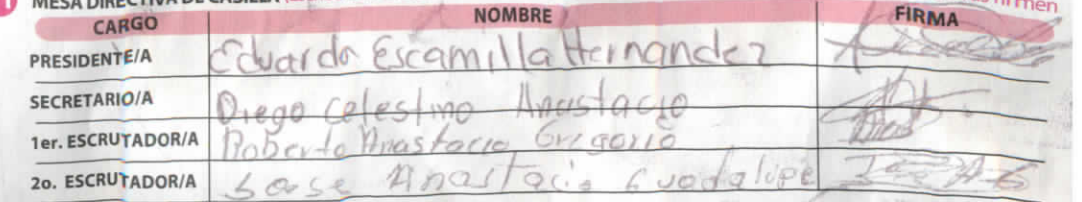 1 MESA DIRECTIVA DE CASILLA
CARGO NOMBRE FIRMA
PRESIDENTE/A Eduardo Escamilla Hernandez
SECRETARIO/A Diego Celestino Anastacio
1er. ESCRUTADOR/A Roberto Anastacio Gregorio
2o. ESCRUTADOR/A Anastacio Guadalupe